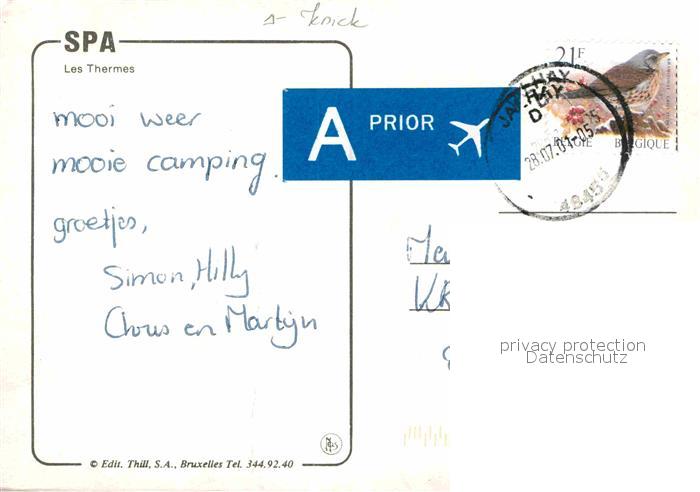 Knick
SPA
Les Thermes
21F
A PRIOR
mooi weer
mooie camping.
groetjes,
Simon, Hilly
Chris en Martijn
BELGIE BELGIQUE
28.07.01-05
48455
privacy protection
Datenschutz
© Edit. Thill, S.A., Bruxelles Tel. 344.92.40